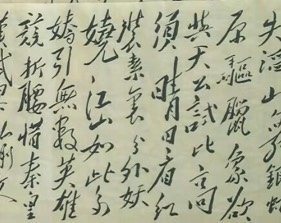 失滔山舞銀
原驅臘象欲
與天公試比高
須晴日看紅
裝素裹分外妖
嬈江山如此多
嬌引無數英雄
競折腰惜秦皇
武文